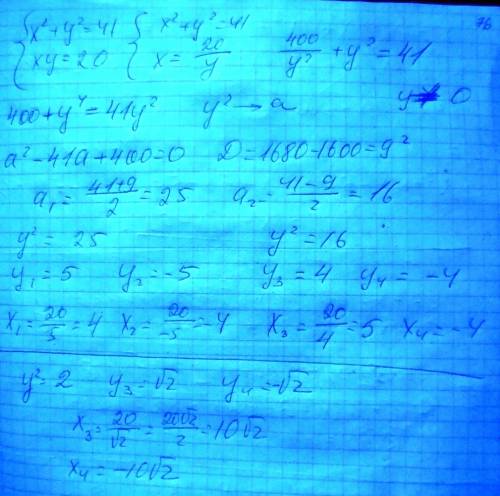 {x²+y²=41 {x²+y²=41 400/y² + y² = 41 76
{xy=20 {x= 20/y
400+y⁴=41y² y²→a y≠0
a²-41a+400=0 D=1680-1600=9²
a₁= (41+9)/2 =25 a₂= (41-9)/2 =16
y²= 25 y²=16
y₁=5 y₂=-5 y₃=4 y₄= -4
x₁= 20/5 =4 x₂= 20/-5 =-4 x₃= 20/4 =5 x₄=-4
y²=2 y₃=√2 y₄=-√2
x₃= 20/√2 = 20√2/2 =10√2
x₄=-10√2